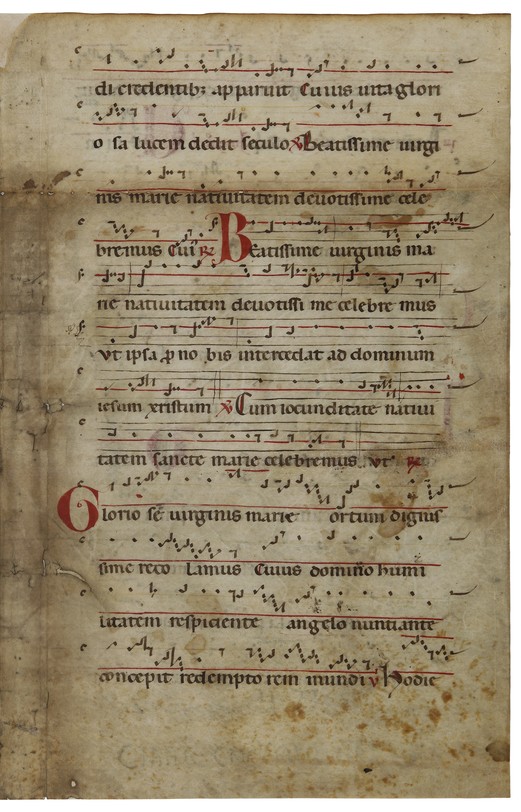 di credentibꝫ apparuit Cuius uita glori
o sa lucem dedit seculo ℣ Beatissime uirgi
nis marie natiuitatem deuotissime cele
bremus Cui ℟ Beatissime uirginis ma
rie natiuitatem deuotissi me celebre mus
vt ipsa ꝓ no bis intercedat ad dominum
iesum xpistum ℣ Cum iocunditate natiui
tatem sancte marie celebremus vt ℟
Glorio se uirginis marie ortum dignis
sime reco lamus Cuius domino humi
litatem respiciente angelo nuntiante
concepit redempto rem mundi ℣ Hodie